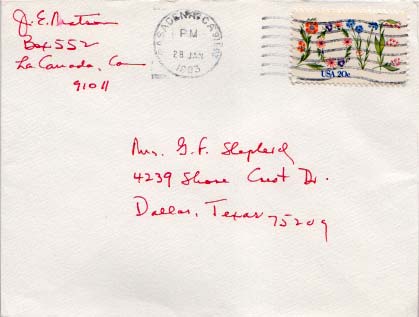 J. E. Matson
Box 552
La Canada, Ca
91011
PASADENA, CALIF
PM
28 JAN
1983
USA 20c
Mrs. G. F. Shepherd
4239 Shore Crest Dr.
Dallas, Texas
75209